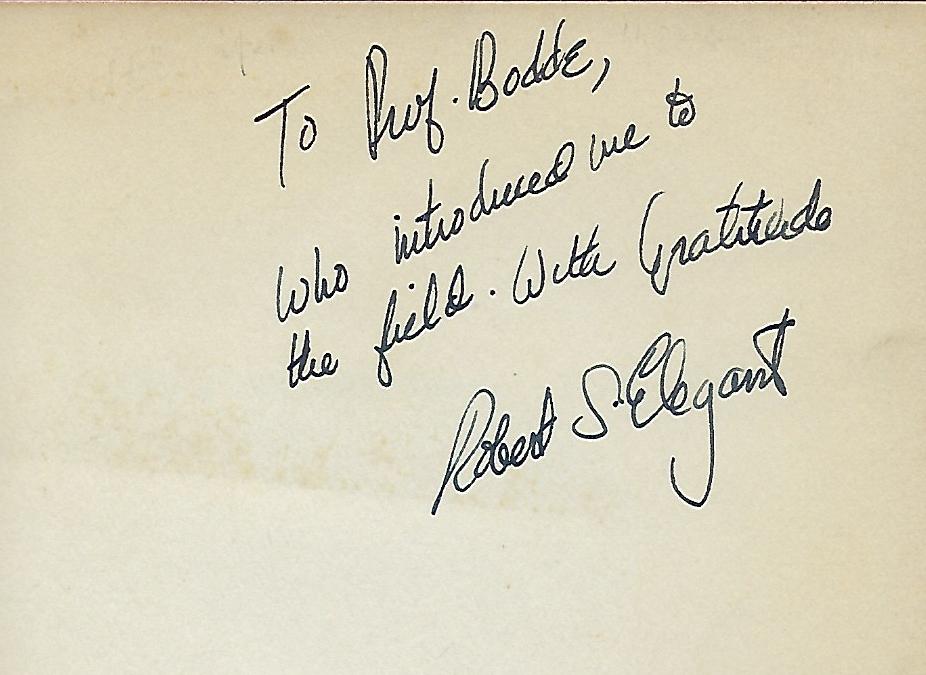 To Prof. Bodde,
who introduced me to
the field. With Gratitude
Robert S. Elegant